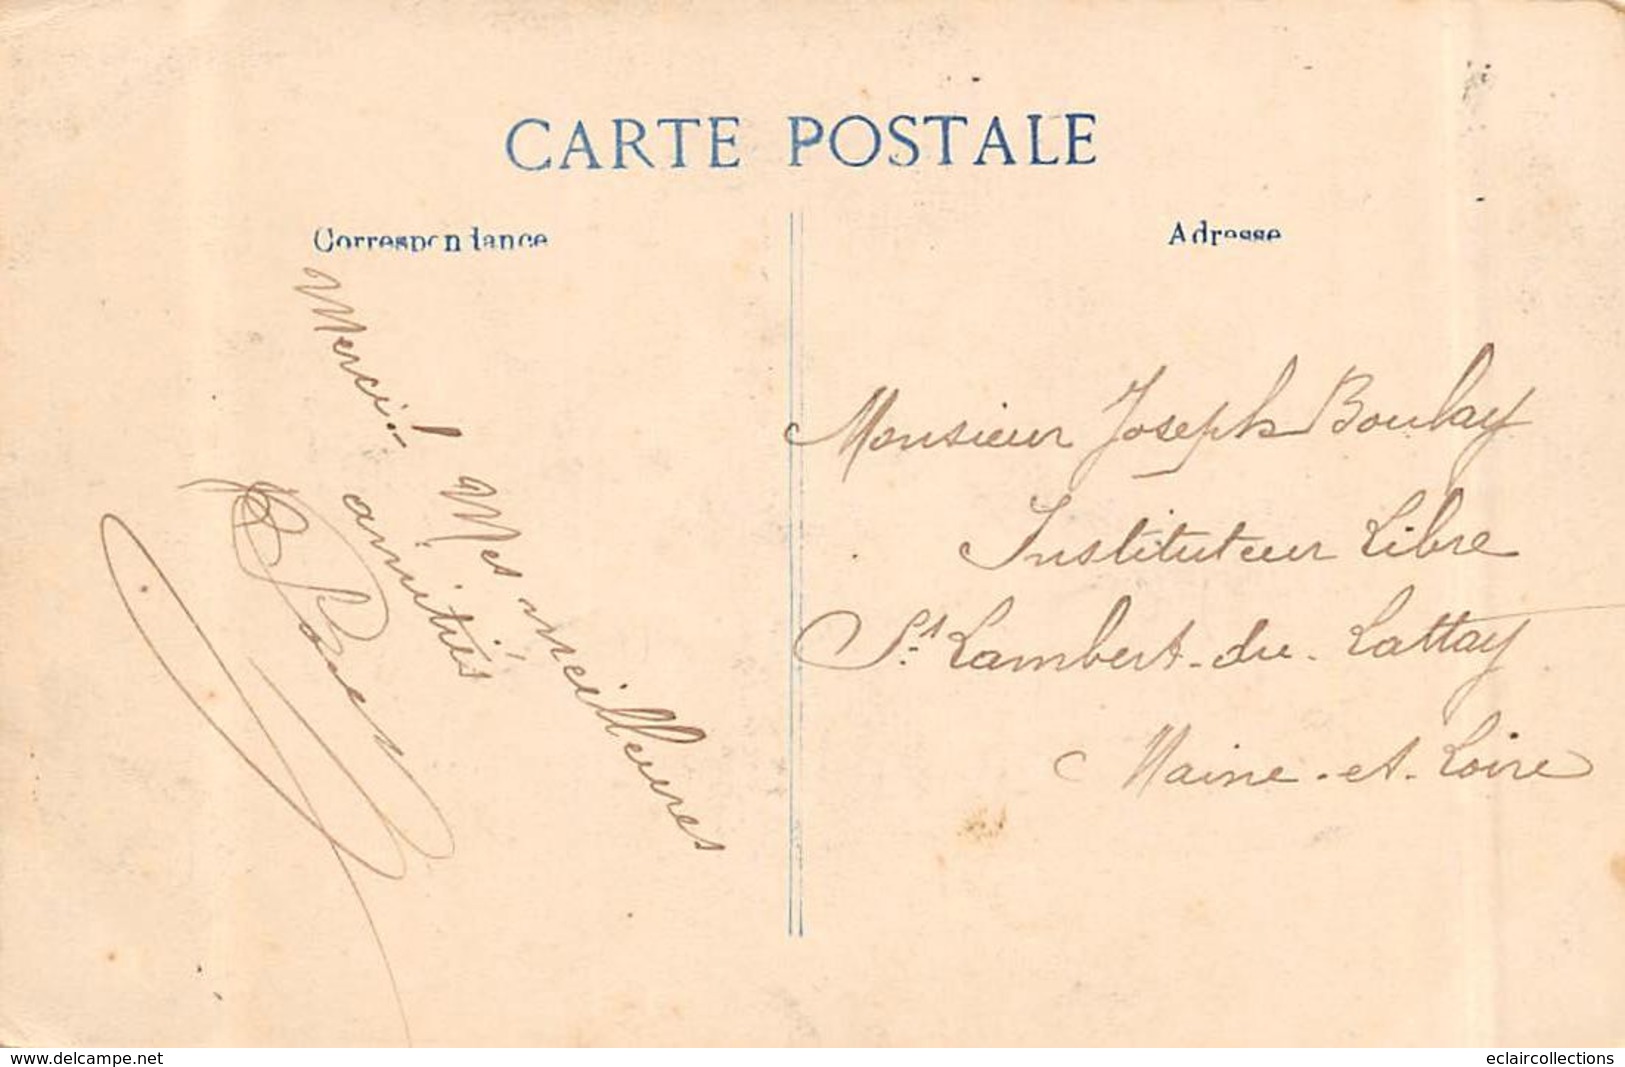 CARTE POSTALE
Correspondance
Adresse
Merci! Mes meilleures
amitiés
Monsieur Joseph Boulay
Instituteur Libre
St Lambert-du-Lattay
Maine-et-Loire
www.delcampe.net
eclaircollections